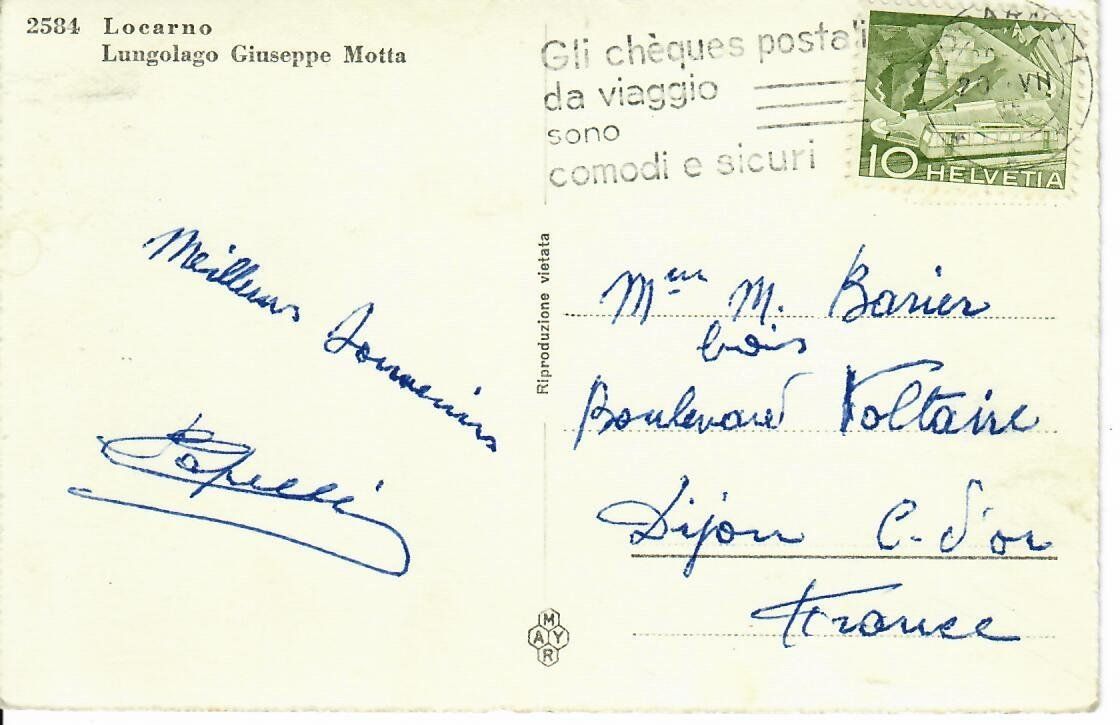 2584 Locarno
Lungolago Giuseppe Motta
Gli chèques postali
da viaggio
sono
comodi e sicuri
20. VII
10 HELVETIA
Meilleurs Souvenirs
Riproduzione vietata
Mme M. Barier
bois
Boulevard Voltaire
Dijon C-d'or
France
MAYR